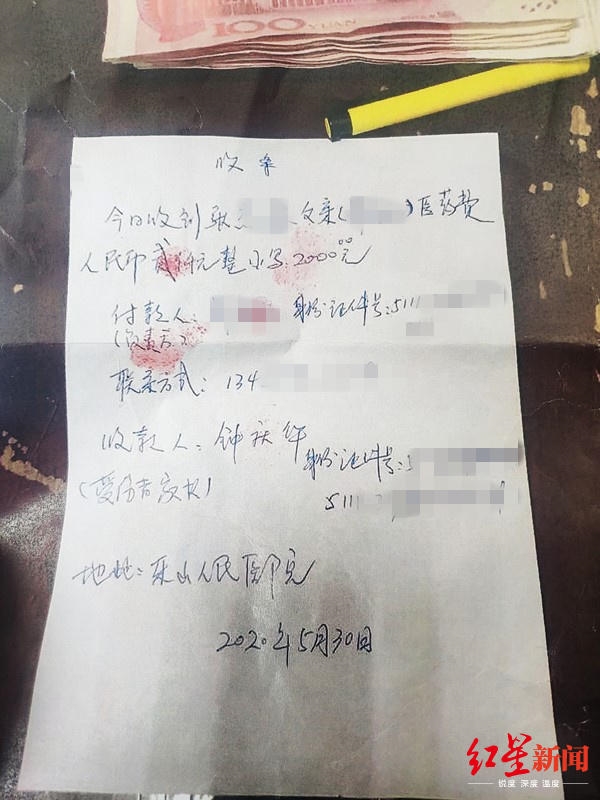 100 YUAN
收条
今日收到张 父亲( )医药费
人民币贰仟元整 小写.2000.00元
付款人: 身份证件号:5111
(负责方)
联系方式: 134
收款人: 钟 年 身份证件号:5
(受伤者家长) 5111
地址: 乐山人民医院
2020年5月30日
红星新闻
锐度 深度 温度